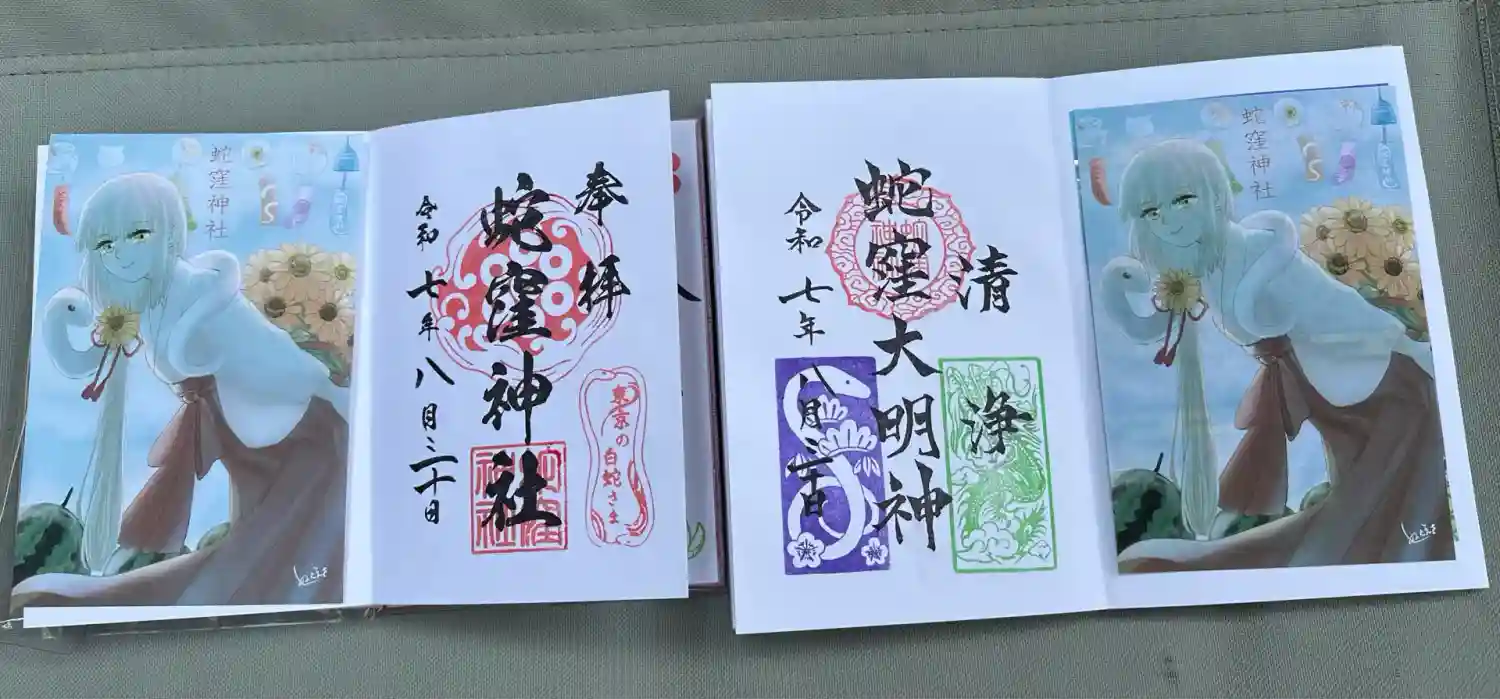 蛇窪神社
奉拝
蛇窪神社
東京の白蛇さま
蛇窪神社
令和七年八月三十日
清浄
蛇窪大明神
令和七年八月三十日
蛇窪神社